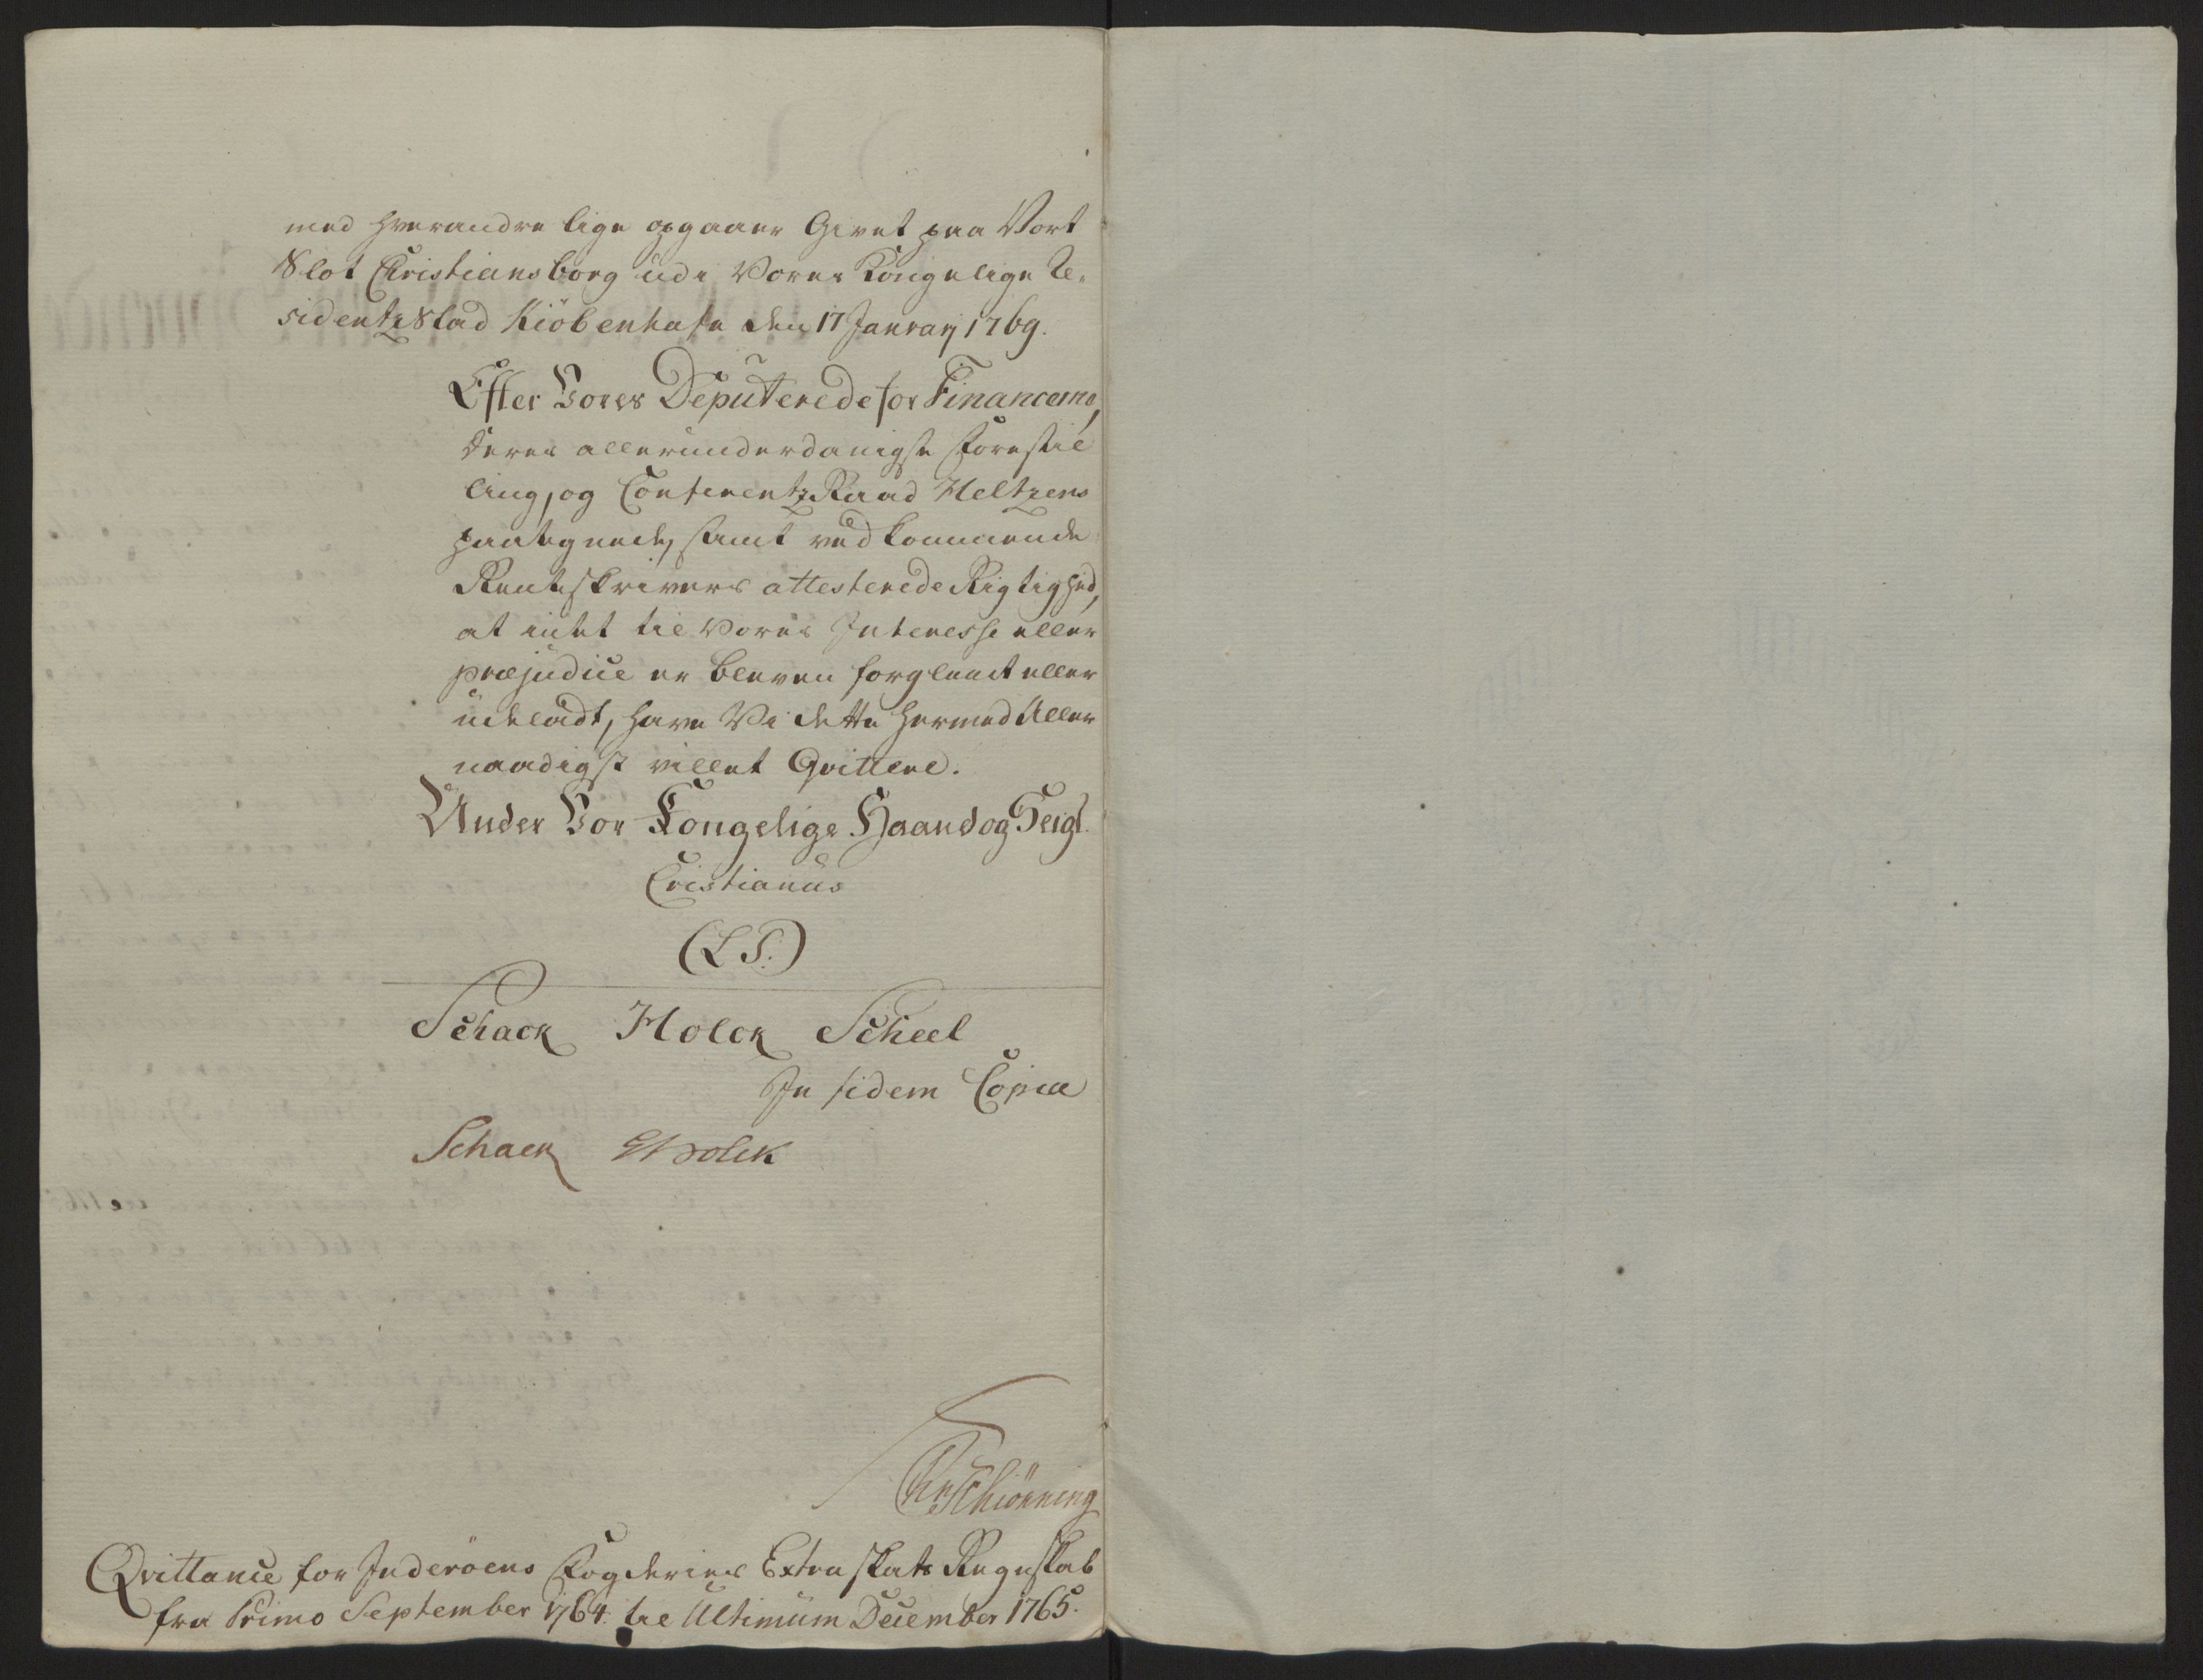 med hverandre lige opgaaer Givet paa Vort
Slot Christiansborg udi Vores Kongelige Re-
sidentz Stad Kiöbenhafn den 17 January 1769.
Efter Vores Deputerede for Financerne,
deres allerunderdanigste Forestil
ling, og Conferentz Raad Heltzens
paategnede, samt vedkommende
Rentskrivers attesterede Rigtighed,
at intet til Vores Interesse eller
præjudice er bleven forglemt eller
udeladt, have Vi dette hermed Aller
naadigst villet Qvittere.
Under Vor Kongelige Haand og Seigl.
Cristianus
(L S.)
Schack Holck Scheel
In fidem Copiæ
Schack Holck
Schiönning
Qvittance for Inderöens Fogderies Extra skatts Regnskab
fra Primo September 1764. til Ultimum December 1765.